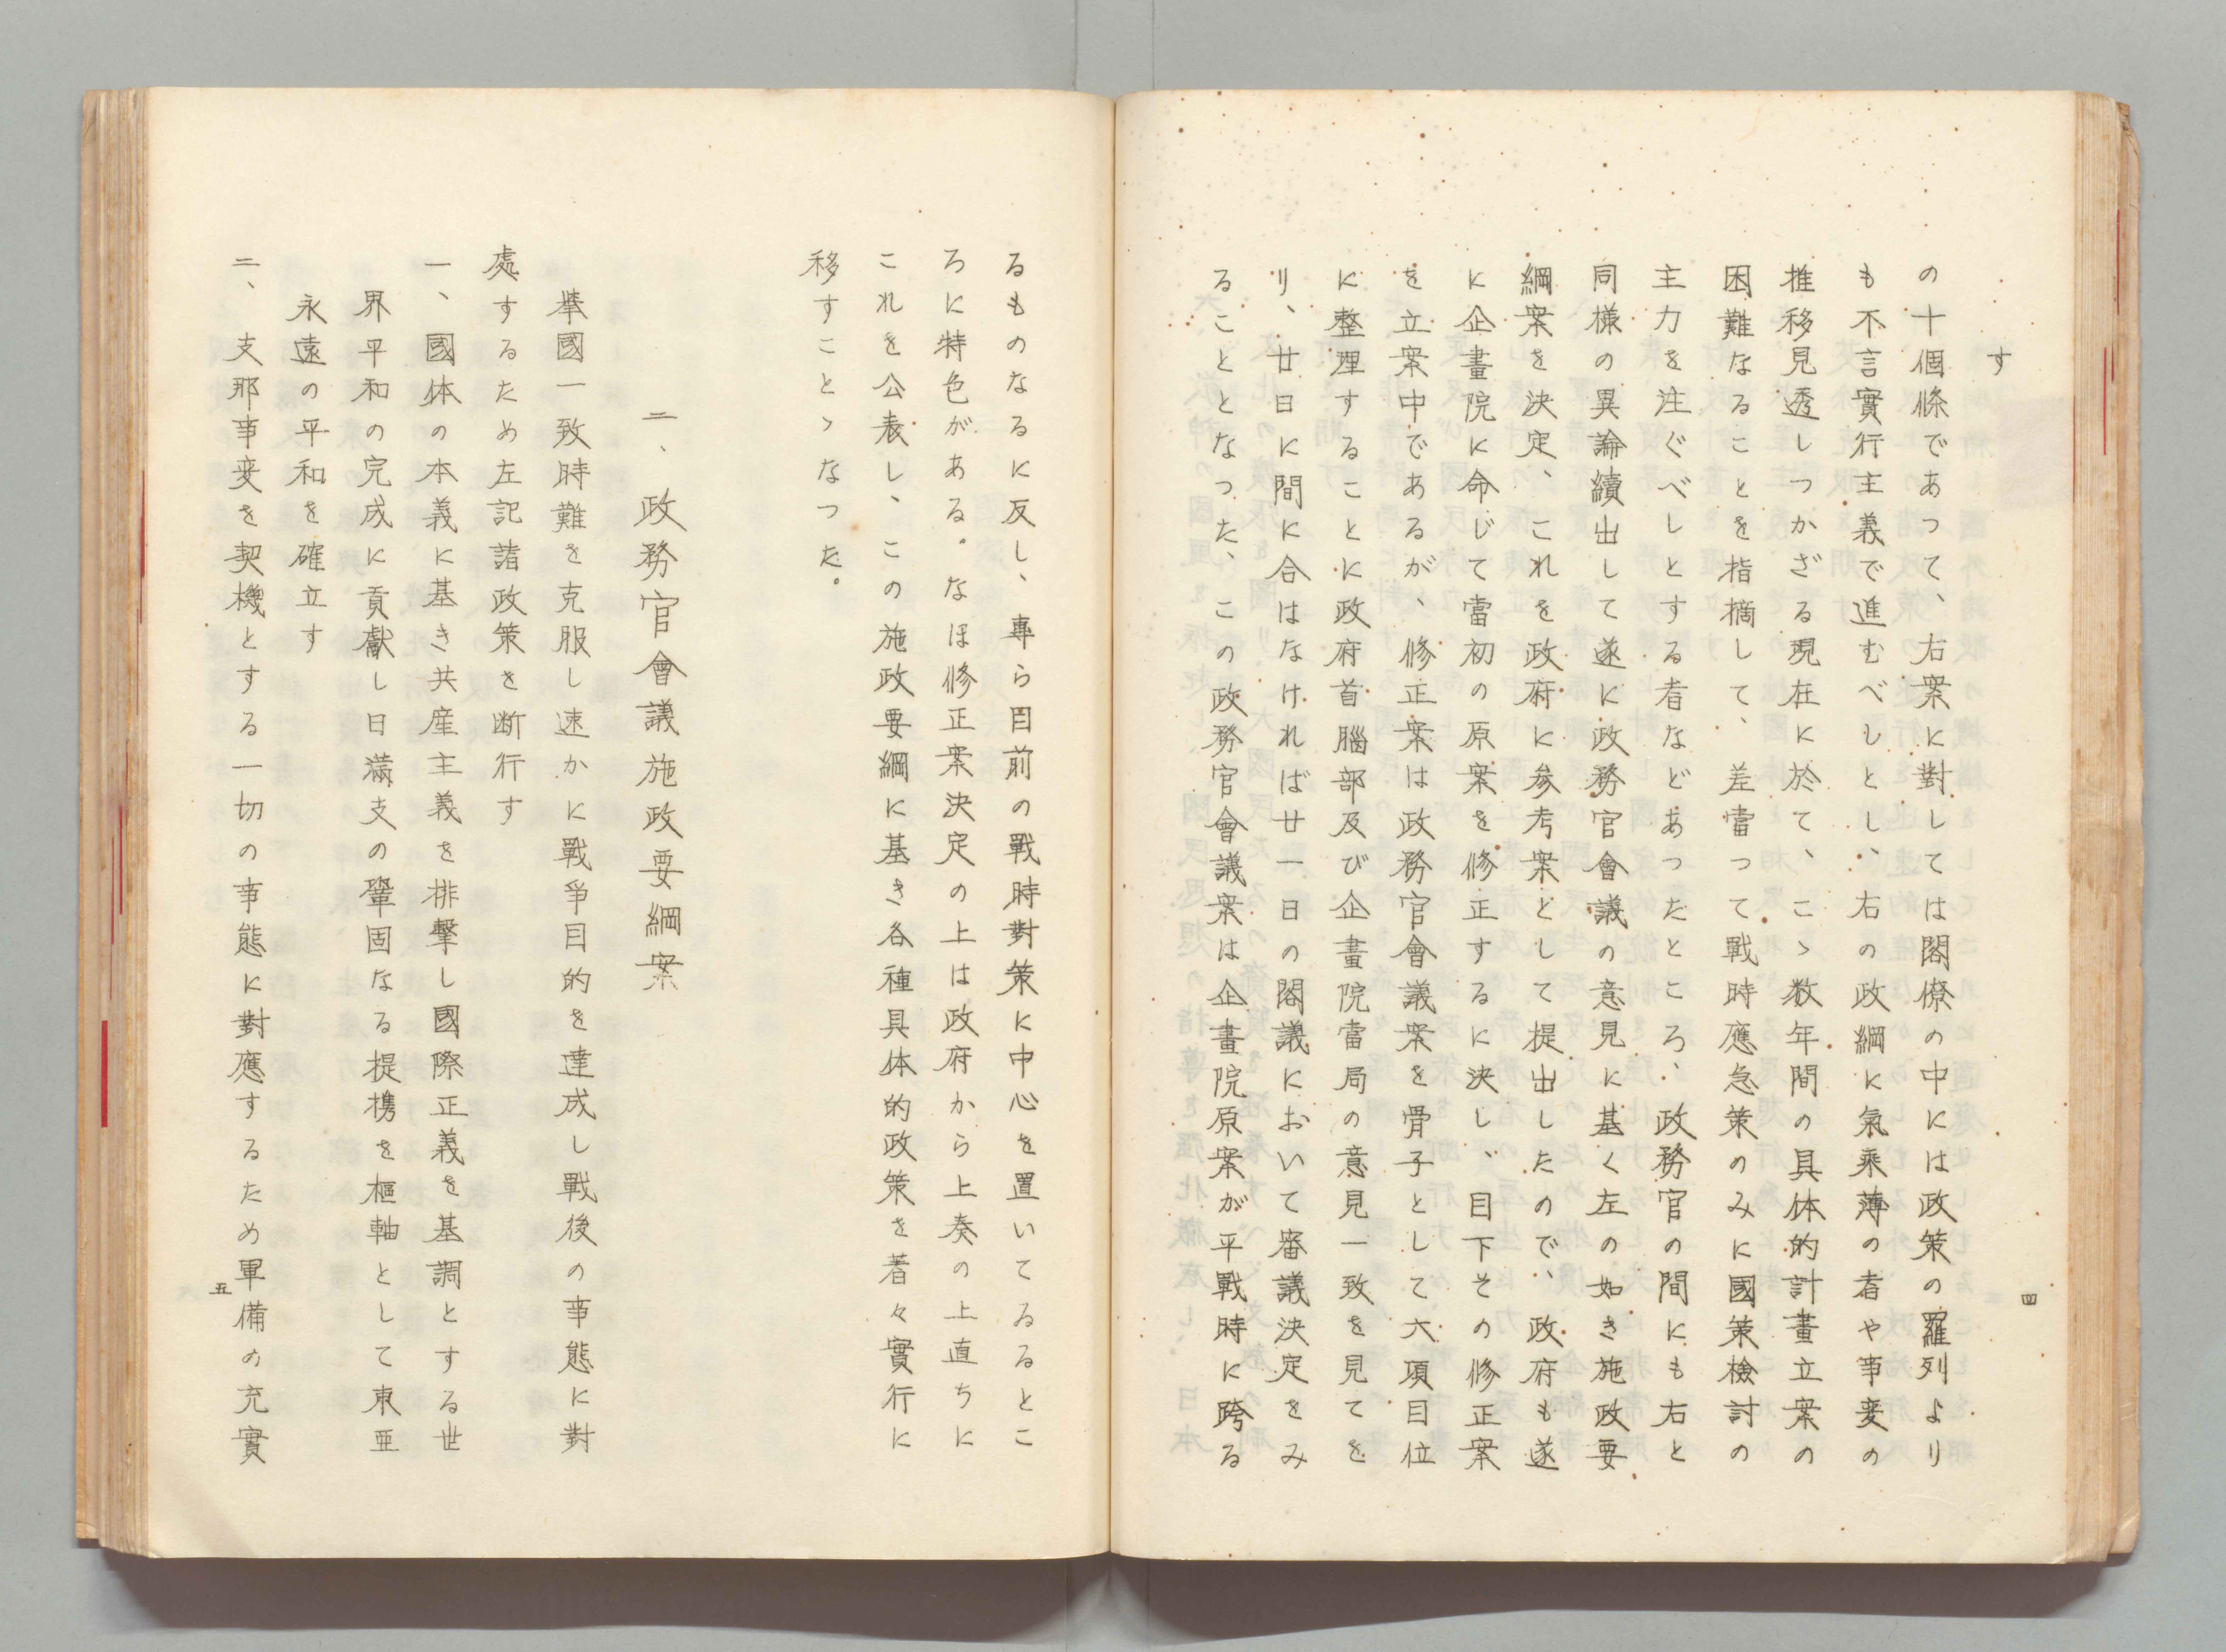 す
の十個條であつて、右案に對しては閣僚の中には政策の羅列より
も不言實行主義で進むべしとし、右の政綱に氣乘薄の者や事変の
推移見透しつかざる現在に於て、こゝ数年間の具体的計畫立案の
困難なることを指摘して、差當つて戰時應急策のみに國策檢討の
主力を注ぐべしとする者などあつたところ、政務官の間にも右と
同様の異論續出して遂に政務官會議の意見に基く左の如き施政要
綱案を決定、これを政府に参考案として提出したので、政府も遂
に企畫院に命じて當初の原案を修正するに決し、目下その修正案
を立案中であるが、修正案は政務官會議案を骨子として六項目位
に整理することに政府首腦部及び企畫院當局の意見一致を見てを
り、廿日に間に合はなければ廿一日の閣議において審議決定をみ
ることとなつた、この政務官會議案は企畫院原案が平戰時に跨る
四
るものなるに反し、專ら目前の戰時對策に中心を置いてるるとこ
ろに特色がある。なほ修正案決定の上は政府から上奏の上直ちに
これを公表し、この施政要綱に基き各種具体的政策を着々實行に
移すことゝなつた。
二、政務官會議施政要綱案
擧國一致時難を克服し速かに戰爭目的を達成し戰後の事態に對
處するため左記諸政策を断行す
一、國体の本義に基き共産主義を排擊し國際正義を基調とする世
界平和の完成に貢獻し日滿支の鞏固なる提携を樞軸として東亜
永遠の平和を確立す
二、支那事変を契機とする一切の事態に對應するため軍備の充實
五